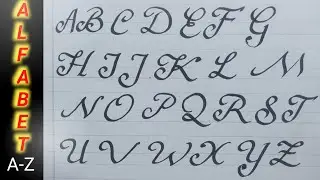 ALFABET
A-Z
A B C D E F G
H I J K L M
N O P Q R S T
U V W X Y Z